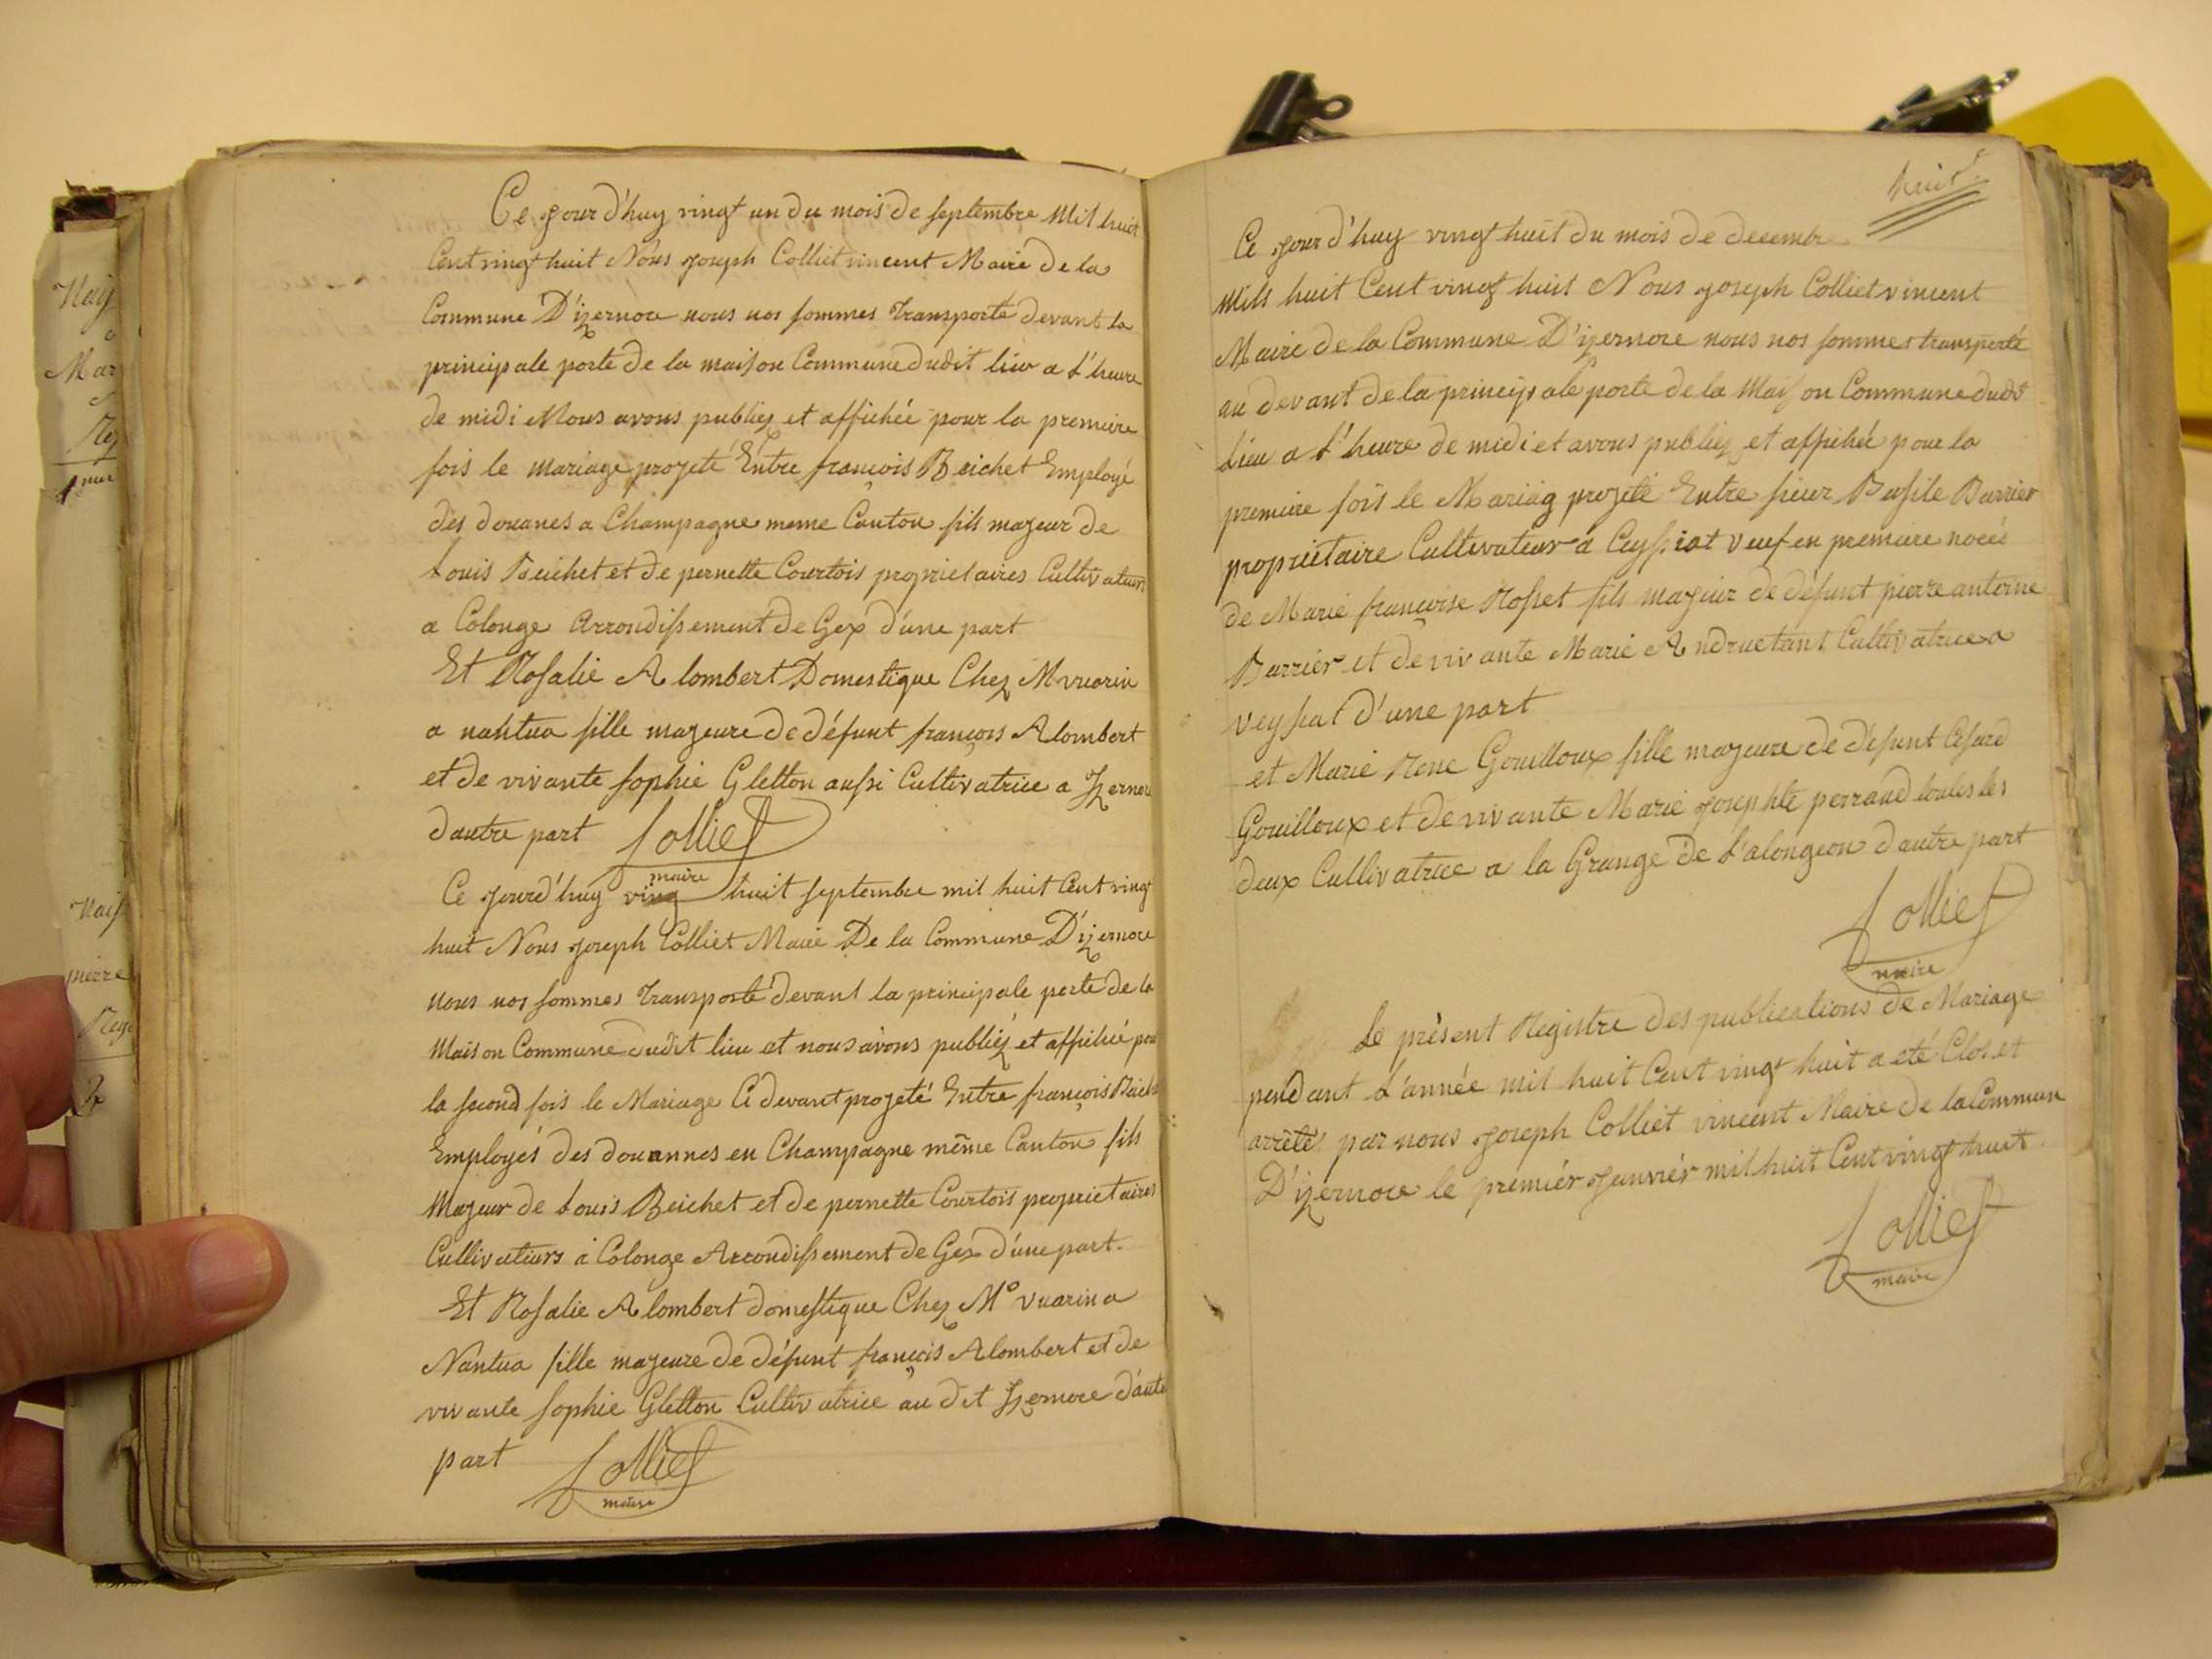 Ce jour d'huy vingt un du mois de septembre Mil huit
Cent vingt huit Nous joseph Colliet vincent Maire de la
Commune D'izernore nous nos sommes Transporté devant la
principale porte de la maison Commune dudit lieu a L'heure
de midi Nous avons publiez et affichée pour la premiere
fois le mariage projeté Entre françois Beichet Employé
des douanes a Champagne meme Canton fils majeur de
Louis Beichet et de pernette Courtois proprietaires Cultivateurs
a Colonge Arrondissement de Gex d'une part
Et Rosalie Alombert Domestique Chez M vuarin
a nantua fille majeure de défunt françois Alombert
et de vivante sophie Gletton aussi Cultivatrice a Izernore
dautre part Colliet
maire
Ce jourd'huy ving huit septembre mil huit Cent vingt
huit Nous joseph Colliet Maire De la Commune D'izernore
nous nos sommes Transporté devant la principale porte de la
Maison Commune dudit lieu et nous avons publiéz et affichée pour
la second fois le Mariage Ci devant projeté Entre françois Beichet
Employés des douannes en Champagne même Canton fils
Majeur de Louis Beichet et de pernette Courtois proprietaires
Cultivateurs à Colonge Arrondissement de Gex d'une part.
Et Rosalie Alombert domestique Chez Mº vuarin a
Nantua fille majeure de défunt françois Alombert et de
vivante sophie Gletton Cultivatrice au dit Izernore d'autre
part Colliet
maire
huit
Ce jour d'huy vingt huit du mois de decembre
Mils huit Cent vingt huit Nous joseph Colliet vincent
Maire de la Commune D'izernore nous nos sommes transporté
au devant de la principale porte de la Maison Commune dudt
Lieu a L'heure de midi et avons publiez et affichée pour la
premiere fois le Mariag projeté Entre sieur Basile Barrier
propriétaire Cultivateur à Ceyssiat veuf en premiere noces
de Marie françoise Rosset fils majeur de défunt pierre antoine
Barrier et de vivante Marie Andruetant Cultivatrice a
veysiat d'une part
et Marie Rene Gouilloux fille majeure de défunt Césard
Gouilloux et de vivante Marie josephte perraud toutes les
deux Cultivatrice a la Grange de L'alongeon dautre part
Colliet
maire
Le présent Régistre des publications de Mariage
pendant L'année mil huit Cent vingt huit a eté Clos et
arrêté par nous joseph Colliet vincent Maire de la Commune
D'izernore le premiér janviér mil huit Cent vingt huit
Colliet
maire
Nais
Mar
Nais
pierre